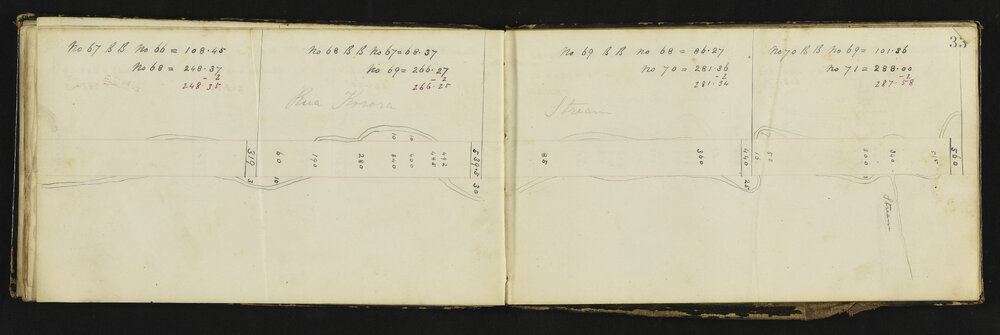 35
No 67 B B No 66 = 108.45
No 68 = 248.37
- 2
248.35
No 68 B B No 67 = 68.37
No 69 = 266.27
- 2
266.25
Rua
No 69 B B No 68 = 86.27
No 70 = 281.36
- 2
281.34
Stream
No 70 B B No 69 = 101.36
No 71 = 288.00
- 2
287.58
319
3
60
10
190
280
10
340
10
400
485
492
539.5
30
85
360
440
25
16
50
300
3
340
515
560
Stream